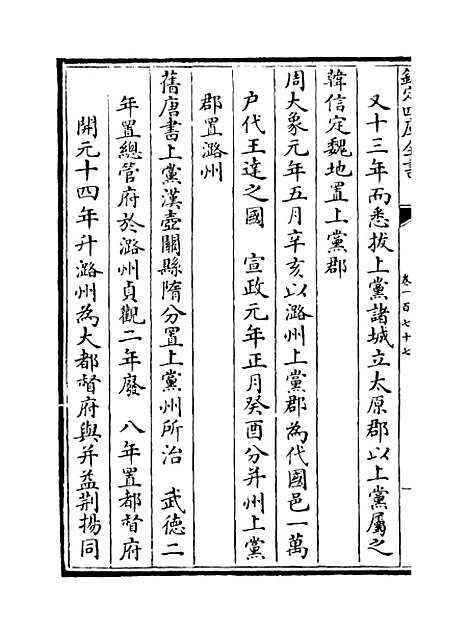 欽定四庫全書
卷一百七十七
一
又十三年而悉拔上黨諸城立太原郡以上黨屬之
韓信定魏地置上黨郡
周大象元年五月辛亥以潞州上黨郡為代國邑一萬
户代王達之國　宣政元年正月癸酉分并州上黨
郡置潞州
舊唐書上黨漢壺關縣隋分置上黨州所治　武德二
年置總管府於潞州貞觀二年廢　八年置都督府
開元十四年升潞州為大都督府與并益荆揚同